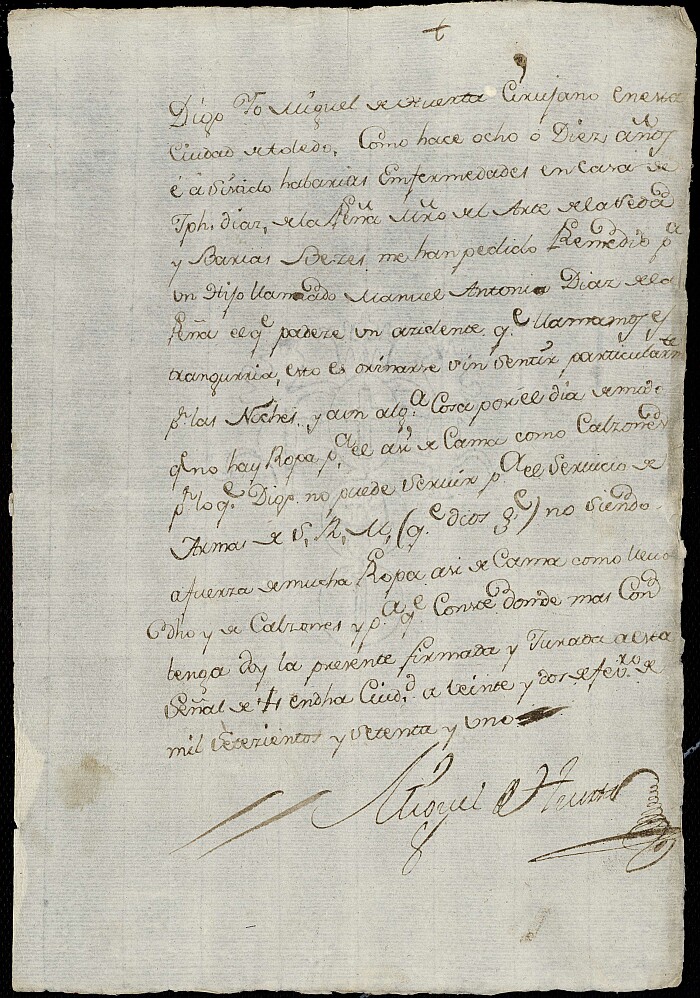 †
Digo Yo Miguel de Huerta Cirujano en esta
Ciudad de toledo, Como hace ocho ó Diez años
é asistido ha barias Enfermedades en Casa de
Jph. diaz, de la Peña Mro del Arte de la Seda
y Barias Bezes me han pedido Remedio pa
un Hijo llamado Manuel Antonio Diaz de la
Peña el qe padeze un azidente qe llamamos es
trangurria, esto es orinarse sin sentir particularmte
pr las Noches, y aun alga Cosa por el dia de modo
qe no hay Ropa pa el asi de Cama como Calzones
pr lo qe Digo no puede Servir pa el Servicio de
Armas de S, R, M, (qe dios ge) no siendo
a fuerza de mucha Ropa asi de Cama como llevo
dho y de Calzones y pa qe Conste donde mas Cond
tenga doy la presente firmada y Jurada a esta
Señal de † en dha Ciudd a veinte y dos de febro de
mil setezientos y setenta y uno
Miguel de Huerta